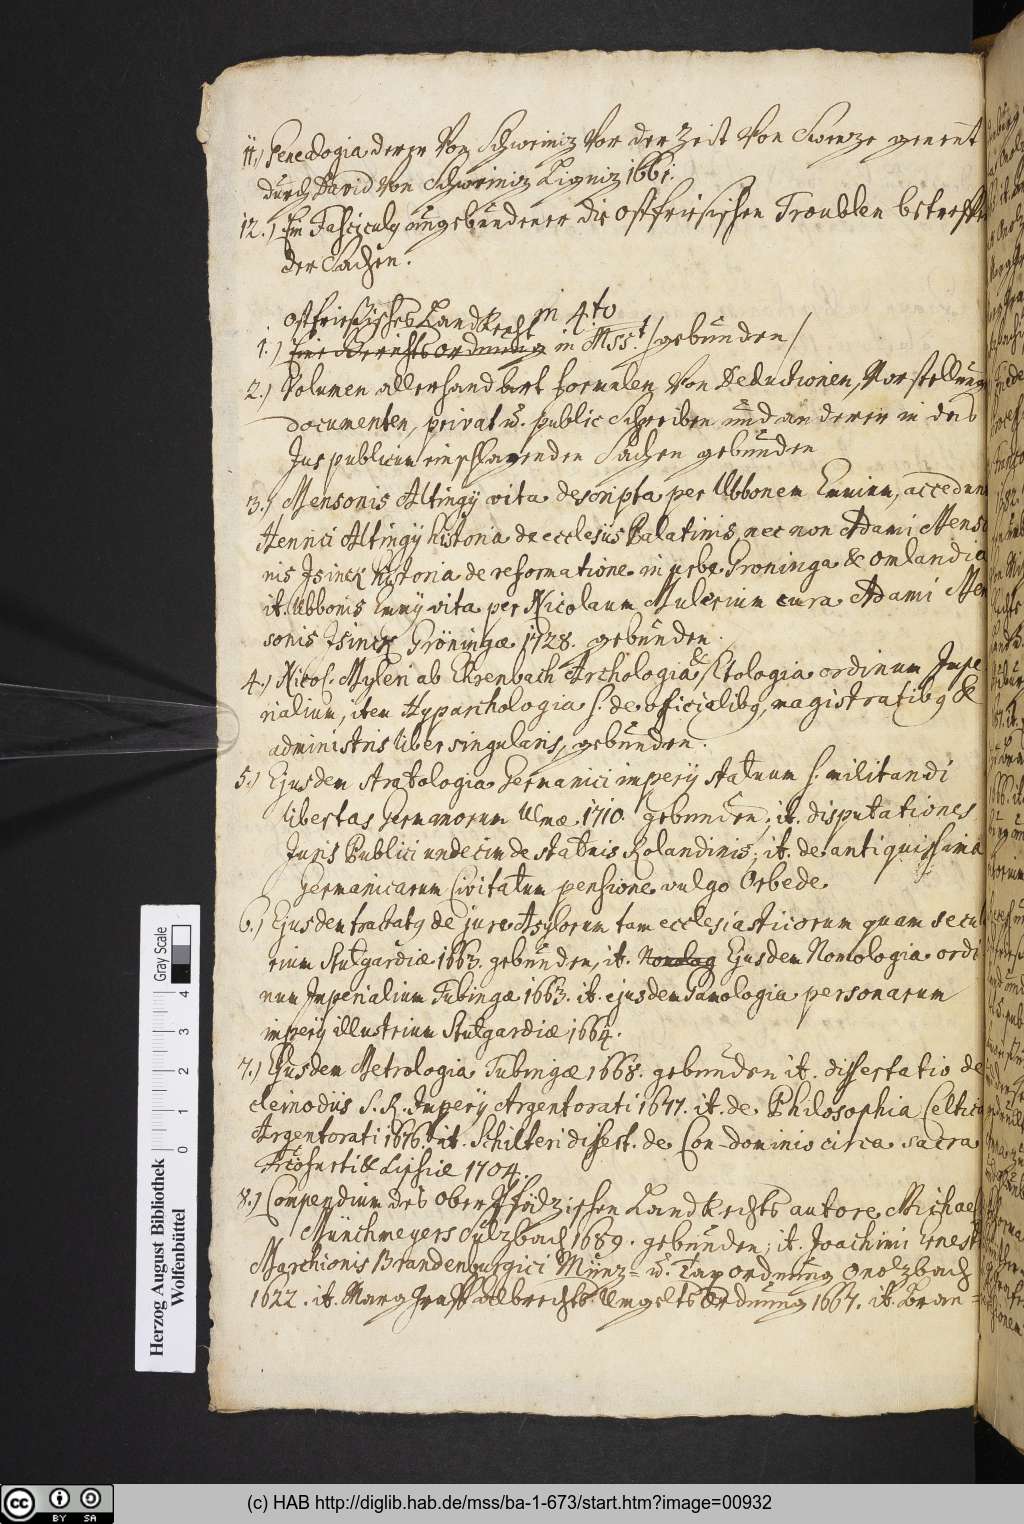 11.) Genealogia derer von Schweiniz vor der Zeit von Swenze genent
durch David von Schweiniz Ligniz 1661.
12.) Ein Fasciculg ungebundener die ostfriesischen Troublen betreffen
der Sachen.
in 4.to
ostfriesisches Landrecht
1.) Eine Gerichts ordnung in Mss.t /gebunden/
2.) Volumen allerhand Formulen von Deductionen, Vorstellung
documenten, privat u. public Schreiben und anderer in das
Jus publicum einschlagenden Sachen gebunden
3.) Mensonis Altingÿ vita descripta per Ubbonem Emium, accedunt
Henrici Altingÿ historia de ecclesiis Palatinis, nec non Adami Menso
nis Isinck historia de reformatione in urbe Groninga & Omlandia
it. Ubbonis Emmÿ vita per Nicolaum Mulerium cura Adami Men
sonis Isinck Gröningæ 1728. gebunden.
4.) Nicol. Myleri ab Ehrenbach Archologia, Stologia ordinum Impe
rialium, item Hyparchologia s. de officialibg, magistratibg &
administris liber singularis, gebunden.
5.) Ejusdem Stratologia Germanici imperÿ statuum s. militandi
libertas Germanorum Ulmæ. 1710. gebunden; it. disputationes
Juris Publici undecim de statuis Rolandinis; it. de antiquissima
Germanicarum Civitatum pensione vulgo Orbede.
6.) Ejusdem tractatg de jure Asylorum tam ecclesiasticorum quam secula
rium Stutgardiæ 1663. gebunden, it. Ejusdem Nomologia ordi
num Imperialium Tubingæ 1663. it. ejusdem Gamologia personarum
imperÿ illustrium Stutgardiæ 1664.
7.) Ejusdem Metrologia Tubingæ 1668. gebunden it. dissertatio de
cleinodiis S. R. Imperÿ Argentorati 1677. it. de Philosophia Celtica
Argentorati 1676. it. Schilteri dissert. de Con-dominio circa sacra
& Lipsiæ 1704.
8.) Compendium des OberPfälzischen LandRechts autore Michael
Münchmeyer Sulzbach 1689. gebunden; it. Joachimi Ernesti
Marchionis Brandenburgici Münz= u. Tax ordnung Onolzbach
1622. it. Marggraff Albrechts Umgelts Ordnung 1667. it. Bran=
Herzog August Bibliothek
Wolfenbüttel
Gray Scale
0 1 2 3 4
cc BY SA
(c) HAB http://diglib.hab.de/mss/ba-1-673/start.htm?image=00932